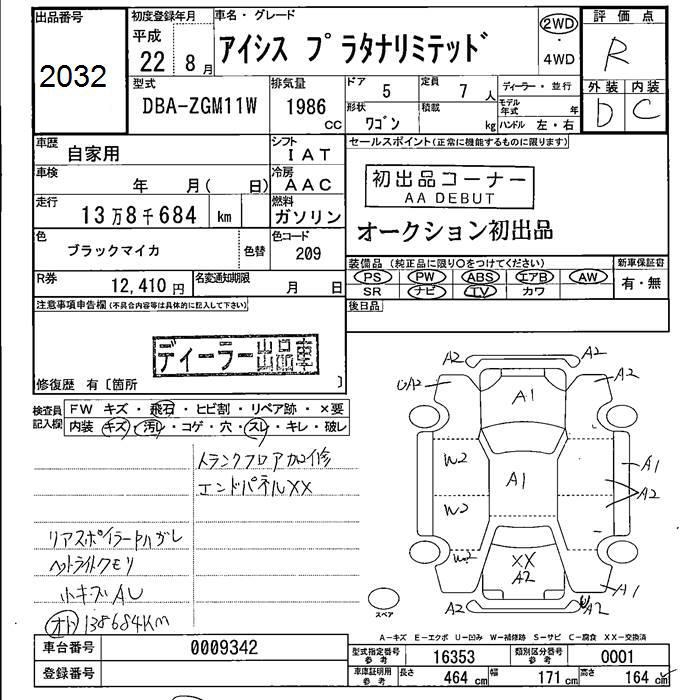 出品番号 初度登録年月 車名・グレード 2WD 評価点
2032 平成 22 8月 アイシス プラタナリミテッド ・4WD R
型式 排気量 ドア 定員 ディーラー・並行 外装 内装
DBA-ZGM11W 1986 CC 5 7人 モデル年式 年 D C
形状 積載
ワゴン kg ハンドル 左・右
車歴 自家用 シフト IAT セールスポイント(正常に機能するものに限ります)
車検 年 月( 日) 冷房 AAC 初出品コーナー
AA DEBUT
走行 13万8千684 km 燃料 ガソリン オークション初出品
色 ブラックマイカ 色替 色コード 209
装備品(純正品に限り○をつけてください) 新車保証書
R券 12,410円 名変通知期限 月 日 PS PW ABS エアB AW 有・無
SR ナビ TV カワ
注意事項申告欄(不具合内容等は具体的に記入して下さい) 後日品
ディーラー出品車
修復歴 有〔箇所 〕
検査員記入欄 FW キズ・飛石・ヒビ割・リペア跡・×要
内装・キズ・汚レ・コゲ・穴・スレ・キレ・破レ
トランクフロア加修
エンドパネルXX
リアスポイラーハガレ
ヘットライトクモリ
小キズAU
オド 138684KM
A2 A2
UA2 A1 A2
W2 A1 A1
W2 A2
W2 XX A2 A1
A2 A2
スペア
A-キズ E-エクボ U-凹み W-補修跡 S-サビ C-腐食 XX-交換済
車台番号 0009342 型式指定番号 参考 16353 類別区分番号 参考 0001
登録番号 車庫証明用 参考 長さ 464 cm 幅 171 cm 高さ 164 cm